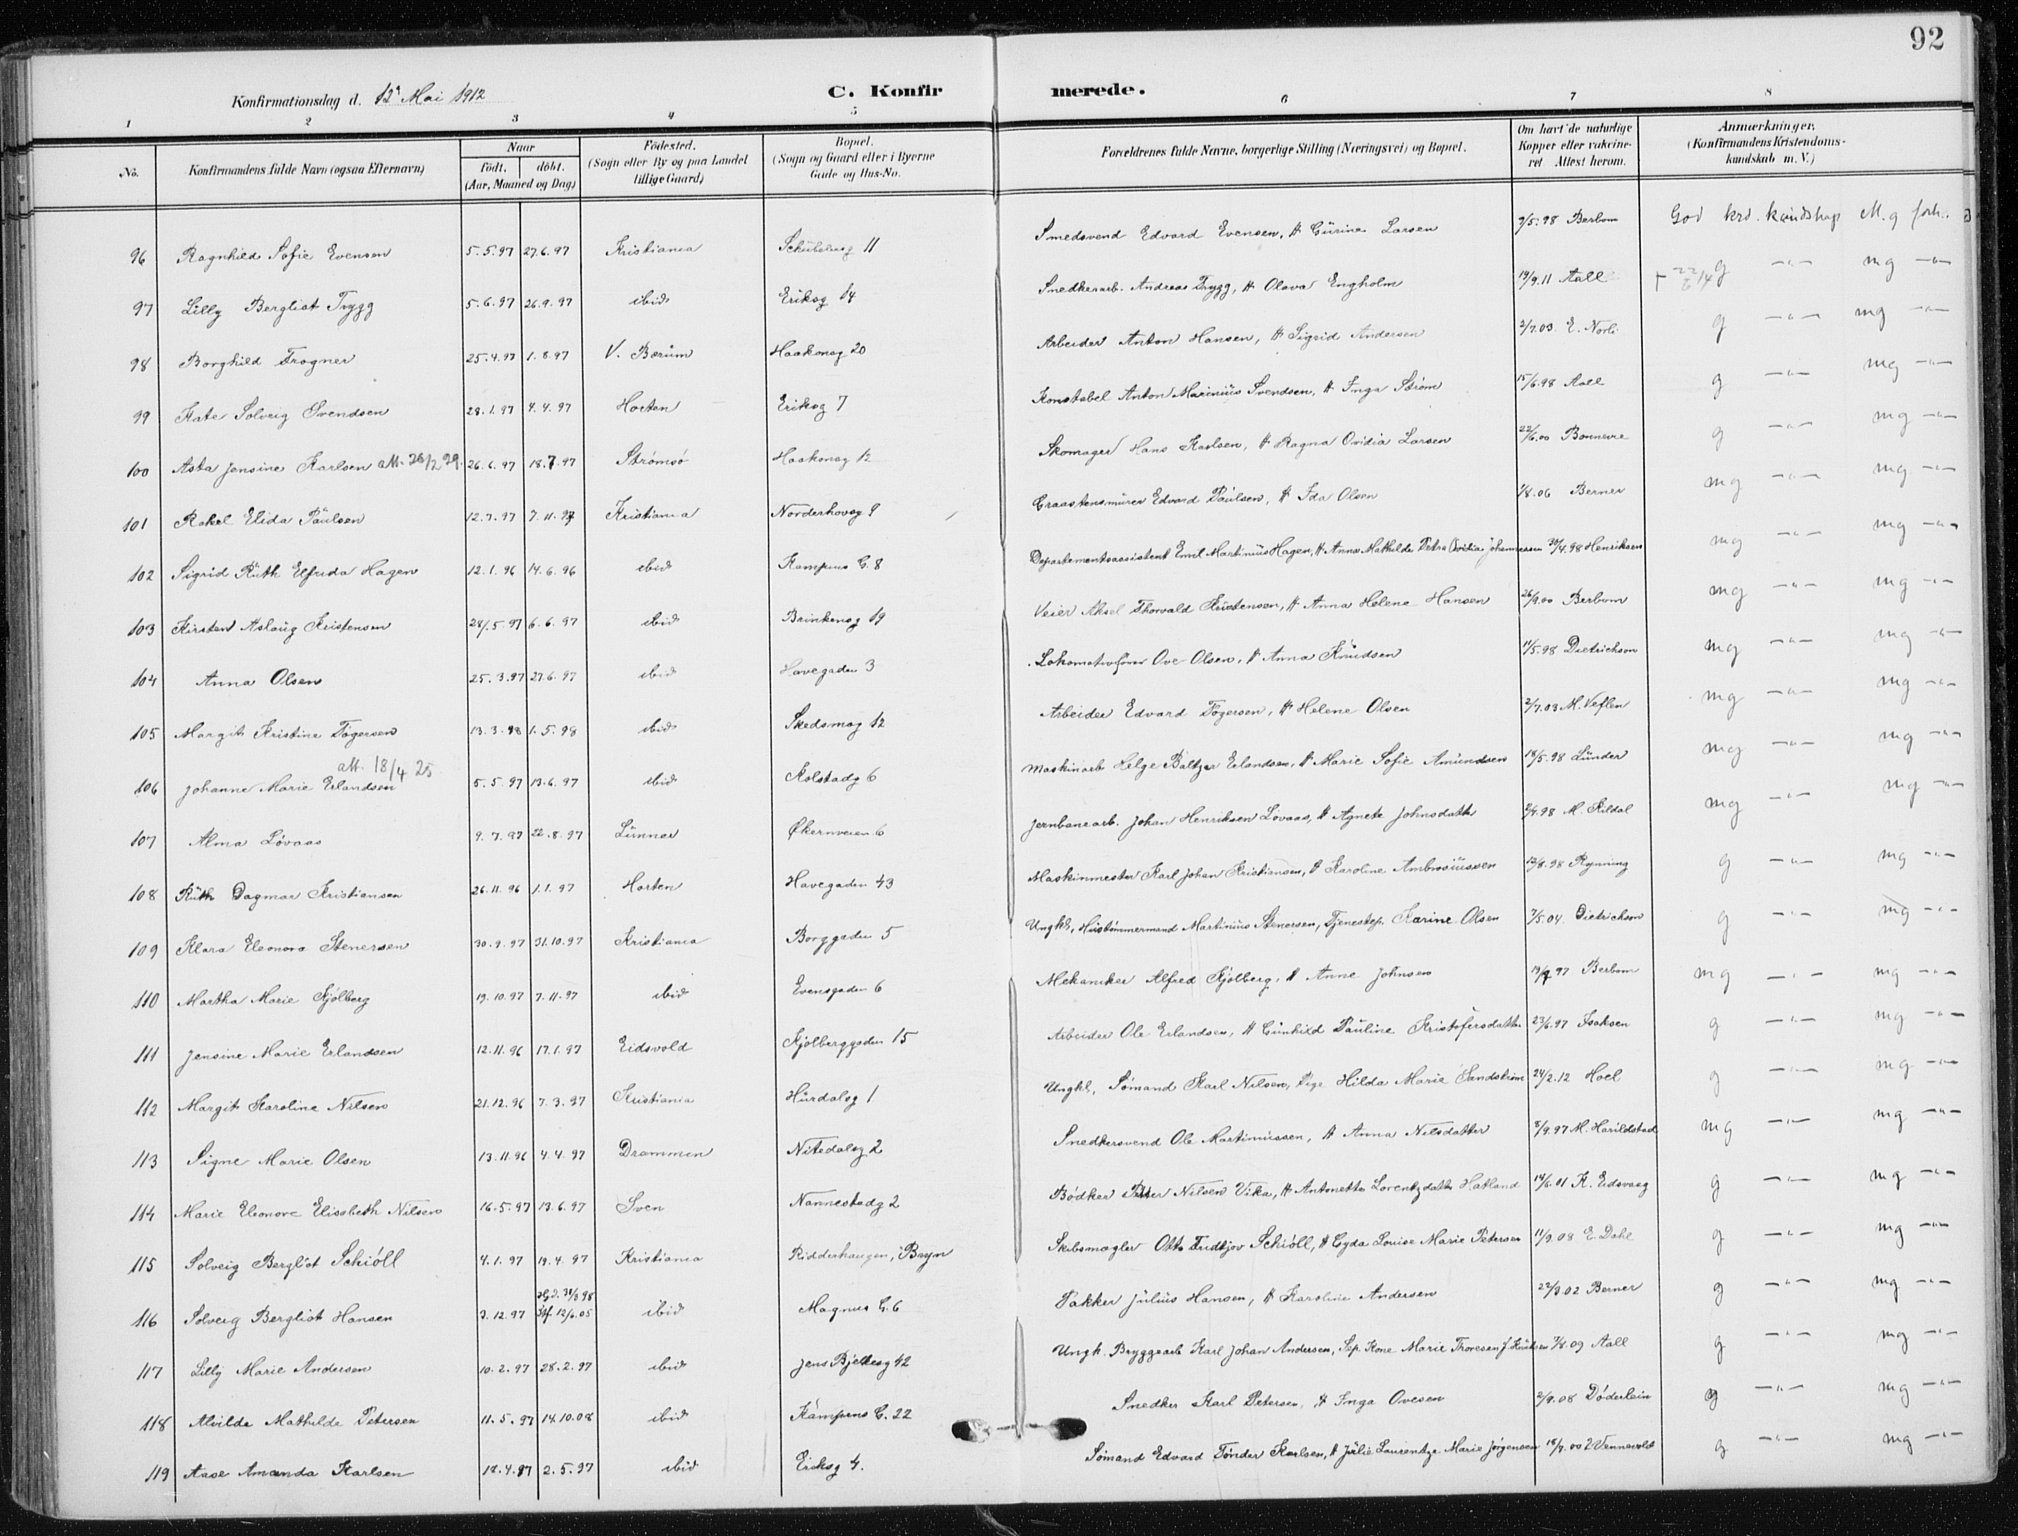 92
Konfirmationsdag d. 12' Mai 1912 C. Konfirmerede.
1 2 3 4 5 6 7 8
No. Konfirmandens fulde Navn (ogsaa Efternavn) Naar Födt. döbt. (Aar, Maaned og Dag) Födested. (Sogn eller By og paa Landet tillige Gaard) Bopæl. (Sogn og Gaard eller i Byerne Gade og Hus-No. Forældrenes fulde Navne, borgerlige Stilling (Næringsvei) og Bopæl. Om havt de naturlige Kopper eller vakcineret Attest herom. Anmærkninger. (Konfirmandens Kristendomskundskab m. V.)
96 Ragnhild Sofie Evensen 5.5.97 27.6.97 Kristiania 11 Smedsvend Edvard Evensen, H Gürine Larsen 9/5.98 Berbom God krd. kundskap M.g forh.
97 Lilly Bergliot Trygg 5.6.97 26.9.97 ibid Eriksg 14 Snedkerarb. Andreas Trygg, H Olava Engholm 19/9.11 Aall g -"- mg -"-
98 Borghild Frogner 25.4.97 1.8.97 V. Bærum Haakonsg 20 Arbeider Anton Hansen, H Sigrid Andersen 2/7.03 E. Norli g -"- mg -"-
99 Kate Solveig Svendsen 28.1.97 4.4.97 Horten Eriksg 7 Konstabel Anton Marinius Svendsen, H Inga Strøm 15/6.98 Aall g -"- mg -"-
100 Asta Jensine Karlsen att. 26/2 29. 26.6.97 18.7.97 Strømsø Haakonsg 12 Skomager Hans Karlsen, H Ragna Ovidia Larsen 22/6.00 Bonnevie g -"- mg -"-
101 Rakel Elida Paulsen 12.7.97 7.11.97 Kristiania Norderhovsg 9 Graastensmürer Edvard Paulsen, H Ida Olsen 1/8.06 Berner mg -"- mg -"-
102 Sigrid Ruth Elfrida Hagen 12.1.96 14.6.96 ibid Kampens G. 8 Departementsassistent Emil Martinius Hagen, H Anna Mathilde Petra Ovidia Johannessen 30/4.98 Henriksen mg -"- mg -"-
103 Kirsten Aslaug Kristensen 28/.5.97 6.6.97 ibid Brinkensg 19 Veier Aksel Thorvald Kristensen, H Anna Helene Hansen 26/9.00 Berbom mg -"- mg -"-
104 Anna Olsen 25.3.97 27.6.97 ibid Havegaden 3 Lokomotivfører Ove Olsen, H Anna Knudsen 11/5.98 Dietrichson mg -"- mg -"-
105 Margit Kristine Togersen 13.3.98 1.5.98 ibid Skedsmog 12 Arbeider Edvard Togersen, H Helene Olsen 2/7.03 M. Veflen mg -"- mg -"-
att. 18/4 25
106 Johanne Marie Erlandsen 5.5.97 13.6.97 ibid Kolstadg 6 Maskinarb Helge Baltzer Erlandsen, H Marie Sofie Amundsen 18/5.98 Lunder mg -"- mg -"-
107 Alma Løvaas 9.7.97 22.8.97 Lunner Økernveien 6 Jernbanearb. Johan Henriksen Lövaas, H Agnete Johnsdatter 2/4.98 M. Kildal mg -"- mg -"-
108 Ruth Dagmar Kristiansen 26.11.96 1.1.97 Horten Havegaden 43 Maskinmester Karl Johan Kristiansen, H Karoline Ambrosiussen 13/8.98 Rynning g -"- mg -"-
109 Klara Eleonora Stenersen 30.9.97 31.10.97 Kristiania Borggaden 5 Ungkl, Hüstömmermand Martinius Stenersen, Tjenestep. Karine Olsen 7/5.04. Dietrichson g -"- mg -"-
110 Martha Marie Kjölberg 19.10.97 7.11.97 ibid Evensgaden 6 Mekaniker Alfred Kjölberg, H Anne Johnsen 97 Berbom mg -"- mg -"-
111 Jensine Marie Erlandsen 12.11.96 17.1.97 Eidsvold Kjölberggaden 15 Arbeider Ole Erlandsen, H Günhild Pauline Kristofersdatter 23/6.97 Isaksen g -"- mg -"-
112 Margit Karoline Nilsen 21.12.96 7.3.97 Kristiania Hürdalsg 1 Ungkl, Sömand Karl Nilsen, Pige Hilda Marie Sandström 24/2.12 Hoel g -"- mg -"-
113 Signe Marie Olsen 13.11.96 4.4.97 Drammen Nitedalsg 2 Snedkersvend Ole Martinussen, H Anna Nilsdatter 8/9.97 M. Harildstad mg -"- mg -"-
114 Marie Eleonore Elisabeth Nilsen 16.5.97 13.6.97 Sven Nannestadg 2 Bödker Petter Nilsen Vika, H Antonette Lorentzdatter Hatland 14/6.01 K. Eidsvaag g -"- mg -"-
115 Solveig Bergliot Schiöll 4.1.97 19.4.97 Kristiania Ridderhaugen, Bryn Skibsmægler Otto Fridtjov Schiöll, H Gyda Louise Marie Petersen 11/9.08 E. Dahl g -"- mg -"-
116 Solveig Bergliot Hansen 3.12.97 Hjd. 31/3.98 Stf 12/6.05 ibid Magnus G. 6 Pakker Julius Hansen, H Karoline Andersen 22/9.02 Berner g -"- mg -"-
117 Lilly Marie Andersen 10.2.97 28.2.97 ibid Jens Bjelkesg 42 Ungk. Bryggearb Karl Johan Andersen, Sep. Kone Marie Thoresen f. Knudsen 7/8.09 Aall g -"- mg -"-
118 Alvilde Mathilde Petersen 11.5.97 14.10.08 ibid Kampens G. 22 Snedker Karl Petersen, H Inga Ovesen 2/9.08 Döderlein g -"- mg -"-
119 Aase Amanda Karlsen 18.4.97 2.5.97 ibid Eriksg 4. Sömand Edvard Tönder Karlsen, H Julie Laurentze Marie Jörgensen 18/7.00 Vennevold g -"- mg -"-